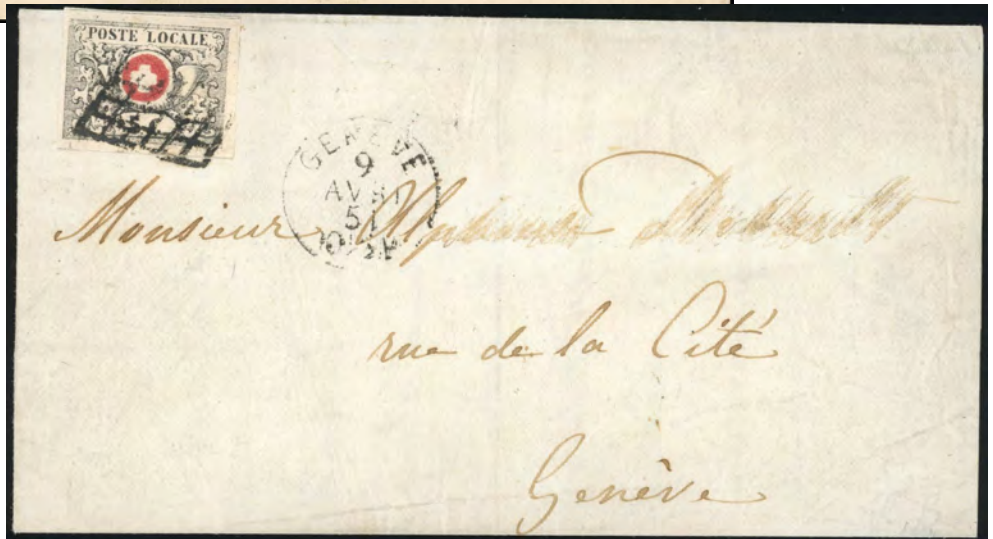 POSTE LOCALE
GENÈVE
9
AVRI
51
Monsieur
rue de la Cité
Genève